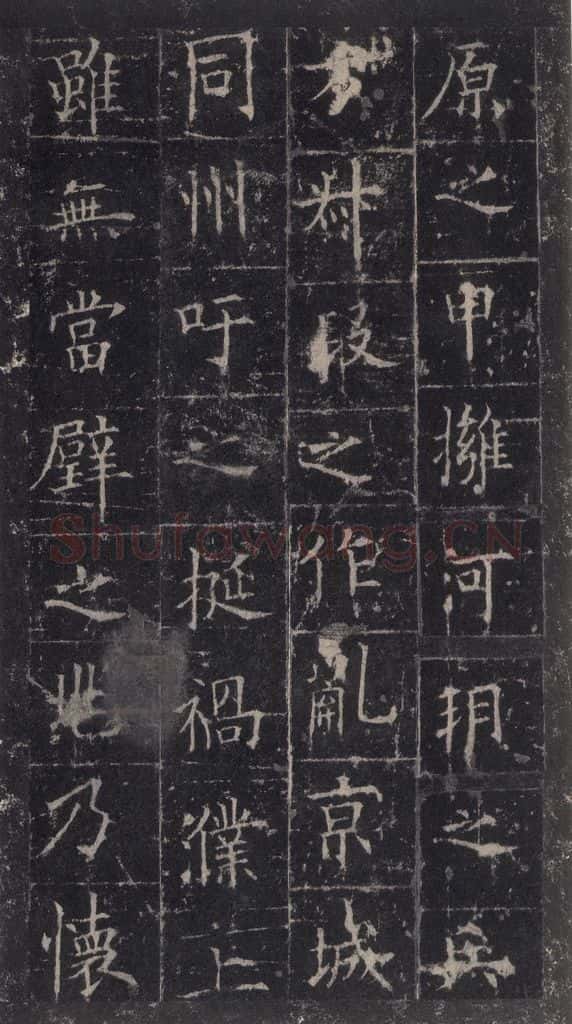 原之甲擁河朔之兵
方叔段之作亂京城
同州吁之挺禍濮上
雖無當璧之兆乃懷
Shufawang.CN